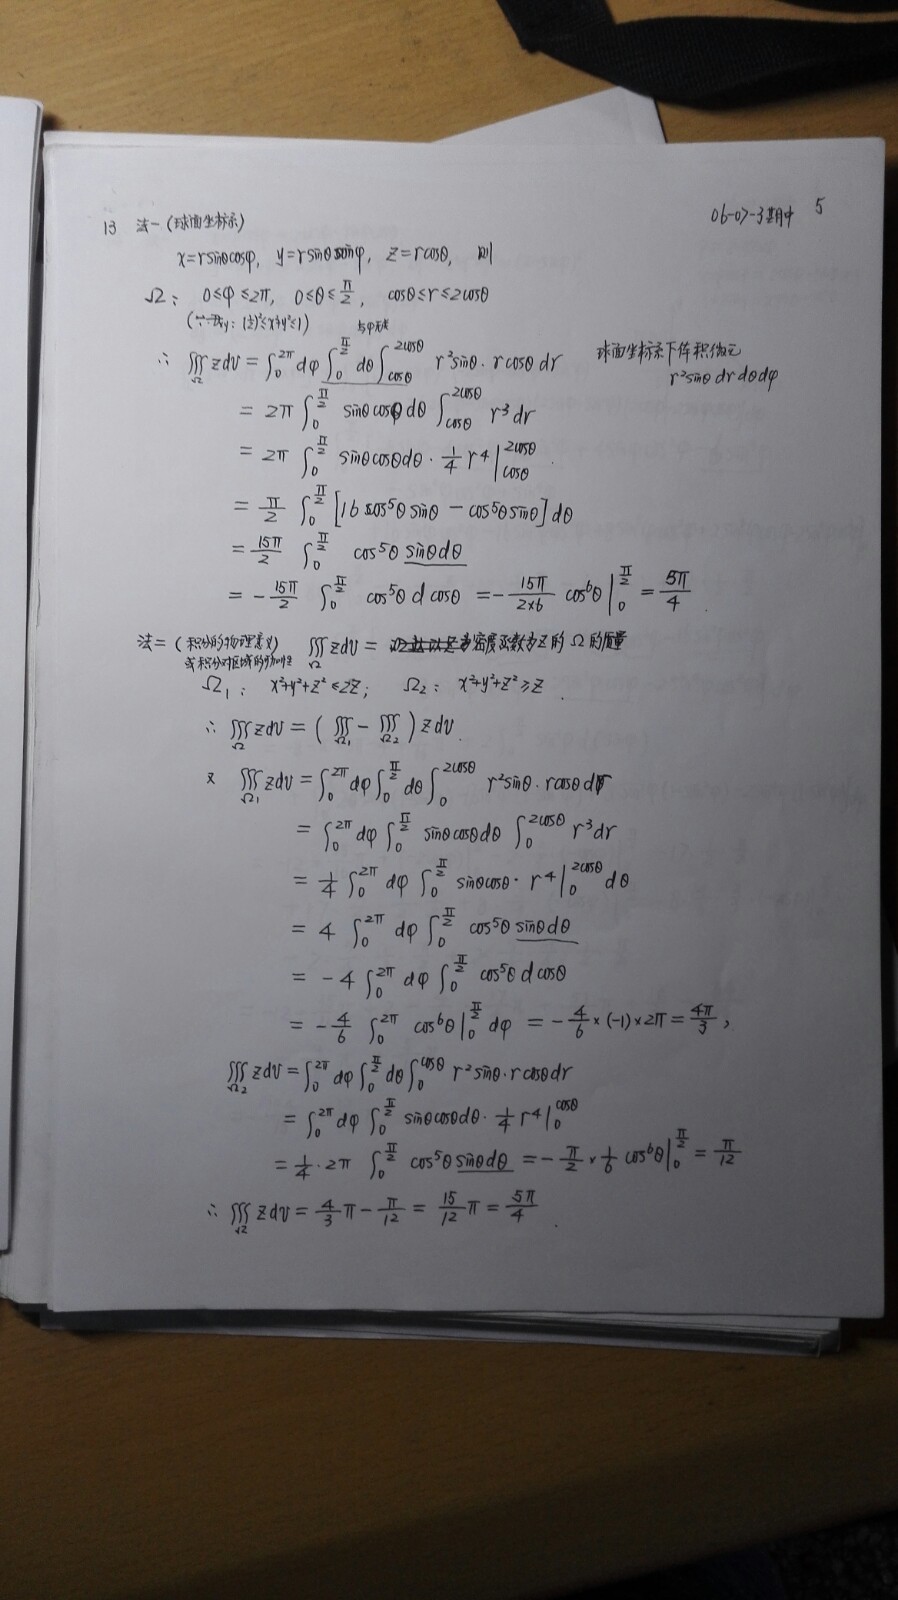 06-07-3期中 5
13 法一 (球面坐标系)
x=rsinθcosφ, y=rsinθsinφ, z=rcosθ, 则
Ω: 0≤φ≤2π, 0≤θ≤π/2, cosθ≤r≤2cosθ
与φ无关
∴ ∭_Ω zdv = ∫_0^{2π} dφ ∫_0^{π/2} dθ ∫_{cosθ}^{2cosθ} r²sinθ · rcosθ dr
球面坐标系下体积微元
r²sinθ dr dθ dφ
= 2π ∫_0^{π/2} sinθcosθ dθ ∫_{cosθ}^{2cosθ} r³ dr
= 2π ∫_0^{π/2} sinθcosθdθ · 1/4 r⁴ |_{cosθ}^{2cosθ}
= π/2 ∫_0^{π/2} [16 cos⁵θ sinθ − cos⁵θ sinθ] dθ
= 15π/2 ∫_0^{π/2} cos⁵θ sinθdθ
= −15π/2 ∫_0^{π/2} cos⁵θ d cosθ = −15π/(2×6) cos⁶θ |_0^{π/2} = 5π/4.
法二 (积分的物理意义) ∭_Ω zdv = 密度函数为z的Ω的质量
或积分对区域的可加性
Ω₁: x²+y²+z²≤2z; Ω₂: x²+y²+z²≥z.
∴ ∭_Ω zdv = (∭_{Ω₁} − ∭_{Ω₂}) zdv.
又 ∭_{Ω₁} zdv = ∫_0^{2π} dφ ∫_0^{π/2} dθ ∫_0^{2cosθ} r²sinθ · rcosθ dr
= ∫_0^{2π} dφ ∫_0^{π/2} sinθcosθdθ ∫_0^{2cosθ} r³dr
= 1/4 ∫_0^{2π} dφ ∫_0^{π/2} sinθcosθ · r⁴ |_0^{2cosθ} dθ
= 4 ∫_0^{2π} dφ ∫_0^{π/2} cos⁵θ sinθdθ
= −4 ∫_0^{2π} dφ ∫_0^{π/2} cos⁵θ d cosθ
= −4/6 ∫_0^{2π} cos⁶θ |_0^{π/2} dφ = −4/6 × (−1) × 2π = 4π/3,
∭_{Ω₂} zdv = ∫_0^{2π} dφ ∫_0^{π/2} dθ ∫_0^{cosθ} r²sinθ · rcosθdr
= ∫_0^{2π} dφ ∫_0^{π/2} sinθcosθdθ · 1/4 r⁴ |_0^{cosθ}
= 1/4 · 2π ∫_0^{π/2} cos⁵θ sinθdθ = −π/2 × 1/6 cos⁶θ |_0^{π/2} = π/12
∴ ∭_Ω zdv = 4/3 π − π/12 = 15/12 π = 5π/4.